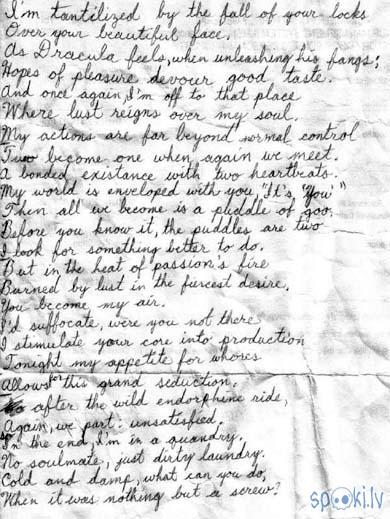 I'm tantilized by the fall of your locks
Over your beautiful face,
As Dracula feels, when unleashing his fangs;
Hopes of pleasure devour good taste.
And once again, I'm off to that place
Where lust reigns over my soul.
My actions are far beyond normal control
Two become one when again we meet.
A bonded existance with two heartbeats.
My world is enveloped with you "It's, "You" "
Then all we become is a puddle of goo.
Before you know it, the puddles are two
I look for something better to do.
But in the heat of passion's fire
Burned by lust in the fiercest desire,
You become my air.
I'd suffocate, were you not there
I stimulate your core into production
Tonight my appetite for whores
Allows for this grand seduction.
So after the wild endorphine ride,
Again, we part. unsatesfied.
In the end, I'm in a quandry.
No soulmate, just dirty laundry.
Cold and damp, what can you do,
When it was nothing but a screw?
spoki.lv